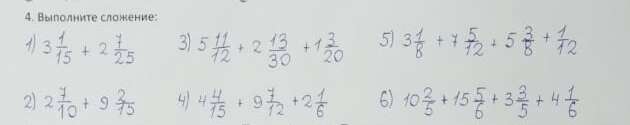 4. Выполните сложение:
1) 3 1/15 + 2 7/25 3) 5 11/12 + 2 13/30 + 1 3/20 5) 3 1/8 + 7 5/12 + 5 3/8 + 1/12
2) 2 7/10 + 9 2/15 4) 4 4/15 + 9 7/12 + 2 1/6 6) 10 2/5 + 15 5/6 + 3 3/5 + 4 1/6